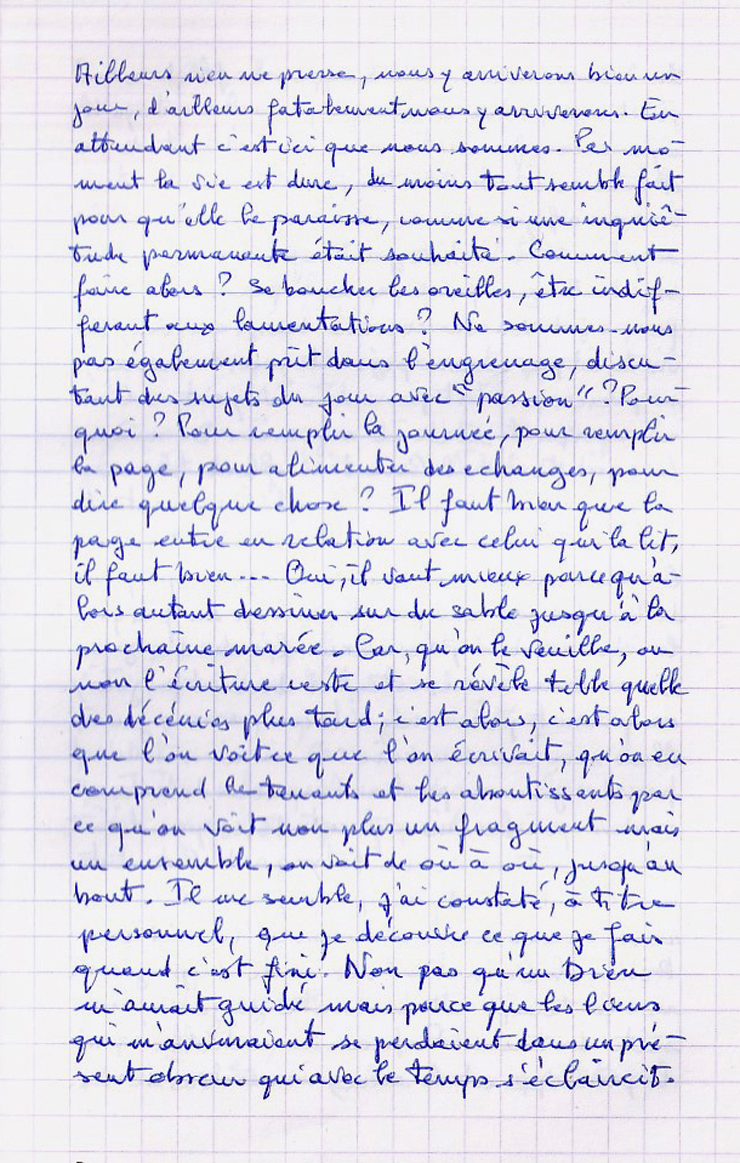 Ailleurs rien ne presse, nous y arriverons bien un
jour, d'ailleurs fatalement nous y arriverons. En
attendant c'est ici que nous sommes. Par mo-
ment la vie est dure, du moins tout semble fait
pour qu'elle le paraisse, comme si une inquié-
tude permanente était souhaité. Comment
faire alors ? Se boucher les oreilles, être indif-
ferant aux lamentations ? Ne sommes-nous
pas également prit dans l'engrenage, discu-
tant des sujets du jour avec "passion" ? Pour-
quoi ? Pour remplir la journée, pour remplir
la page, pour alimenter des echanges, pour
dire quelque chose ? Il faut bien que la
page entre en relation avec celui qui la lit,
il faut bien... Oui, il vaut mieux parce qu'a-
lors autant dessiner sur du sable jusqu'à la
prochaine marée. Car, qu'on le veuille, ou
non l'écriture reste et se révèle telle quelle
des décénies plus tard ; c'est alors, c'est alors
que l'on voit ce que l'on écrivait, qu'on en
comprend les tenants et les aboutissants par
ce qu'on voit non plus un fragment mais
un ensemble, on voit de où à où, jusqu'au
bout. Il me semble, j'ai constaté, à titre
personnel, que je découvre ce que je fais
quand c'est fini. Non pas qu'un Dieu
m'aurait guidé mais parce que les liens
qui m'animaient se perdaient dans un pré-
sent obscur qui avec le temps s'éclaircit.